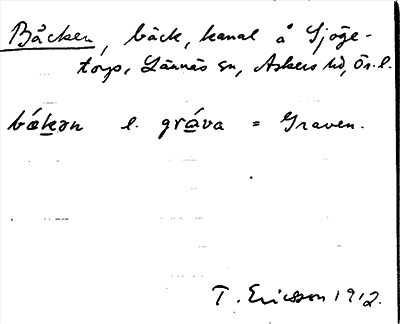 Bäcken, bäck, kanal å Sjöge-
torp, Lännäs sn, Askers hd, Ör. l.
bækən l. grava = Graven.
T. Ericsson 1912.